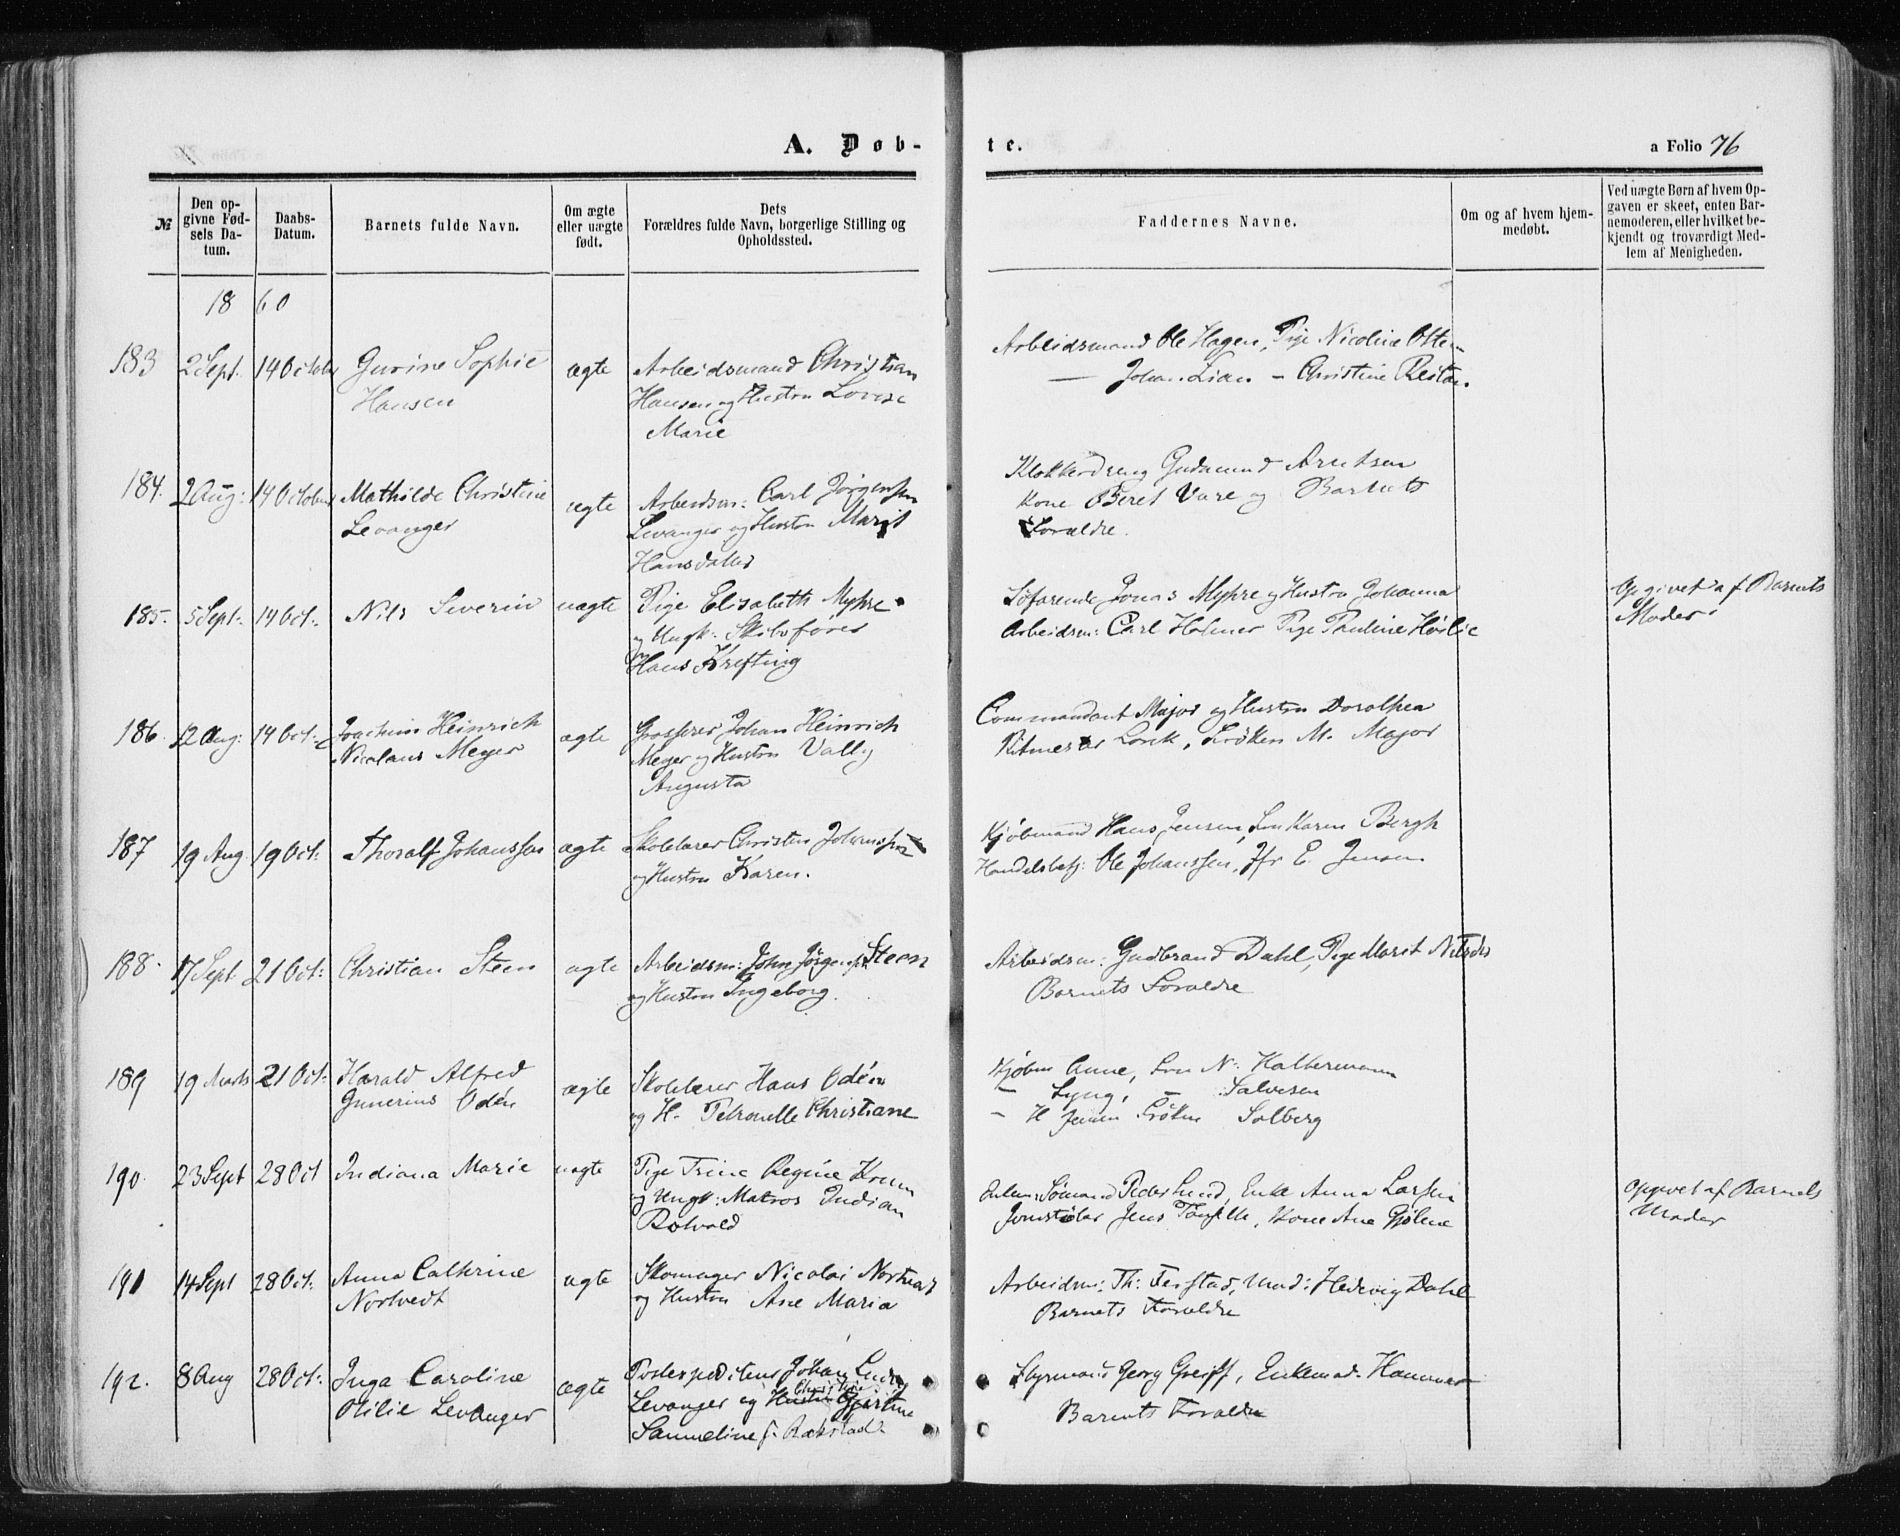 A. Døb-
te.
a Folio 76
№
Den op-
givne Fød-
sels Da-
tum.
Daabs-
Datum.
Barnets fulde Navn.
Om ægte
eller uægte
født.
Dets
Forældres fulde Navn, borgerlige Stilling og
Opholdssted.
Faddernes Navne.
Om og af hvem hjem-
medøbt.
Ved uægte Børn af hvem Op-
gaven er skeet, enten Bar-
nemoderen, eller hvilket be-
kjendt og troværdigt Med-
lem af Menigheden.
1860
183 2 Sept. 14 October Gurine Sophie
Hansen
ægte
Arbeidsmand Christian
Hansen og Hustru Lovise
Marie
Arbeidsmand Ole Hagen, Pige Nicoline
— Johan Lian – Christine
184. 2 Aug: 14 October Mathilde Christine
Levanger
ægte
Arbeidsm: Carl Jørgensen
Levanger og Hustru Marit
Hansdatter
Gudmund Arntsen
Kone Beret Vare og Barnets
Forældre.
185. 5 Sept: 14 Oct: Nils Severin
uægte
Pige Elisabeth Myhre
og Ungk: Skibsfører
Hans Krefting
Søfarende Jonas Myhre og Hustru Johanna
Arbeidsm: Carl Holmer Pige Pauline Høilie
Opgivet af Barnets
Moder
186. 12 Aug: 14 Oct: Joachim Heinrich
Nicolaus Meyer
ægte
Grosserer Johan Heinrich
Meyer og Hustru Vally
Augusta
Commandant Major og Hustru Dorothea
Ritmester Lorck, Frøken M. Major
187 19 Aug. 19 Oct: Thoralf Johanssen
ægte
Skolelærer Christen Johanssen
og Hustru Karen.
Kjøbmand Hans Jensen, Fru Karen Bergh
Handelsbetj: Ole Johanssen, Jfr E. Jensen
188. 17 Sept 21 Oct: Christian Steen
ægte
Arbeidsm: John Jørgensen Steen
og Hustru Ingeborg.
Arbeidsm: Gudbrand Dahl, Pige Marit Nilsdr
Barnets Forældre
189 19 Marts 21 Oct: Harald Alfred
Gunerius Odén
ægte
Skolelærer Hans Odén
og H. Petronelle Christiane
Kjøbm Anne, Fru N. Haltermann
– Lyng, – Salvesen
– H Jensen Frøken Solberg
190. 23 Sept 28 Oct Indiana Marie
uægte
Pige Trine Regine Krum
og Ungk: Matros Indian
Rotvold
Sømand Peder Lund, Enke Anna Larsen
Jens Kone Ane Gjølme
Opgivet af Barnets
Moder
191 14 Sept 28 Oct: Anna Cathrine
Nortvedt
ægte
Skomager Nicolai Nortvedt
og Hustru Ane Maria
Arbeidsm: Th: Ferstad, Mad: Hedevig Dahl
Barnets Forældre
192. 8 Aug 28 Oct: Inga Caroline
Otilie Levanger
ægte
Postexpediteur Johan
Christine
Levanger og Hustru Gjertine
Sammeline f. Rakstad
Styrmand Georg Greiff, Enkemad. Hammer
Barnets Forældre